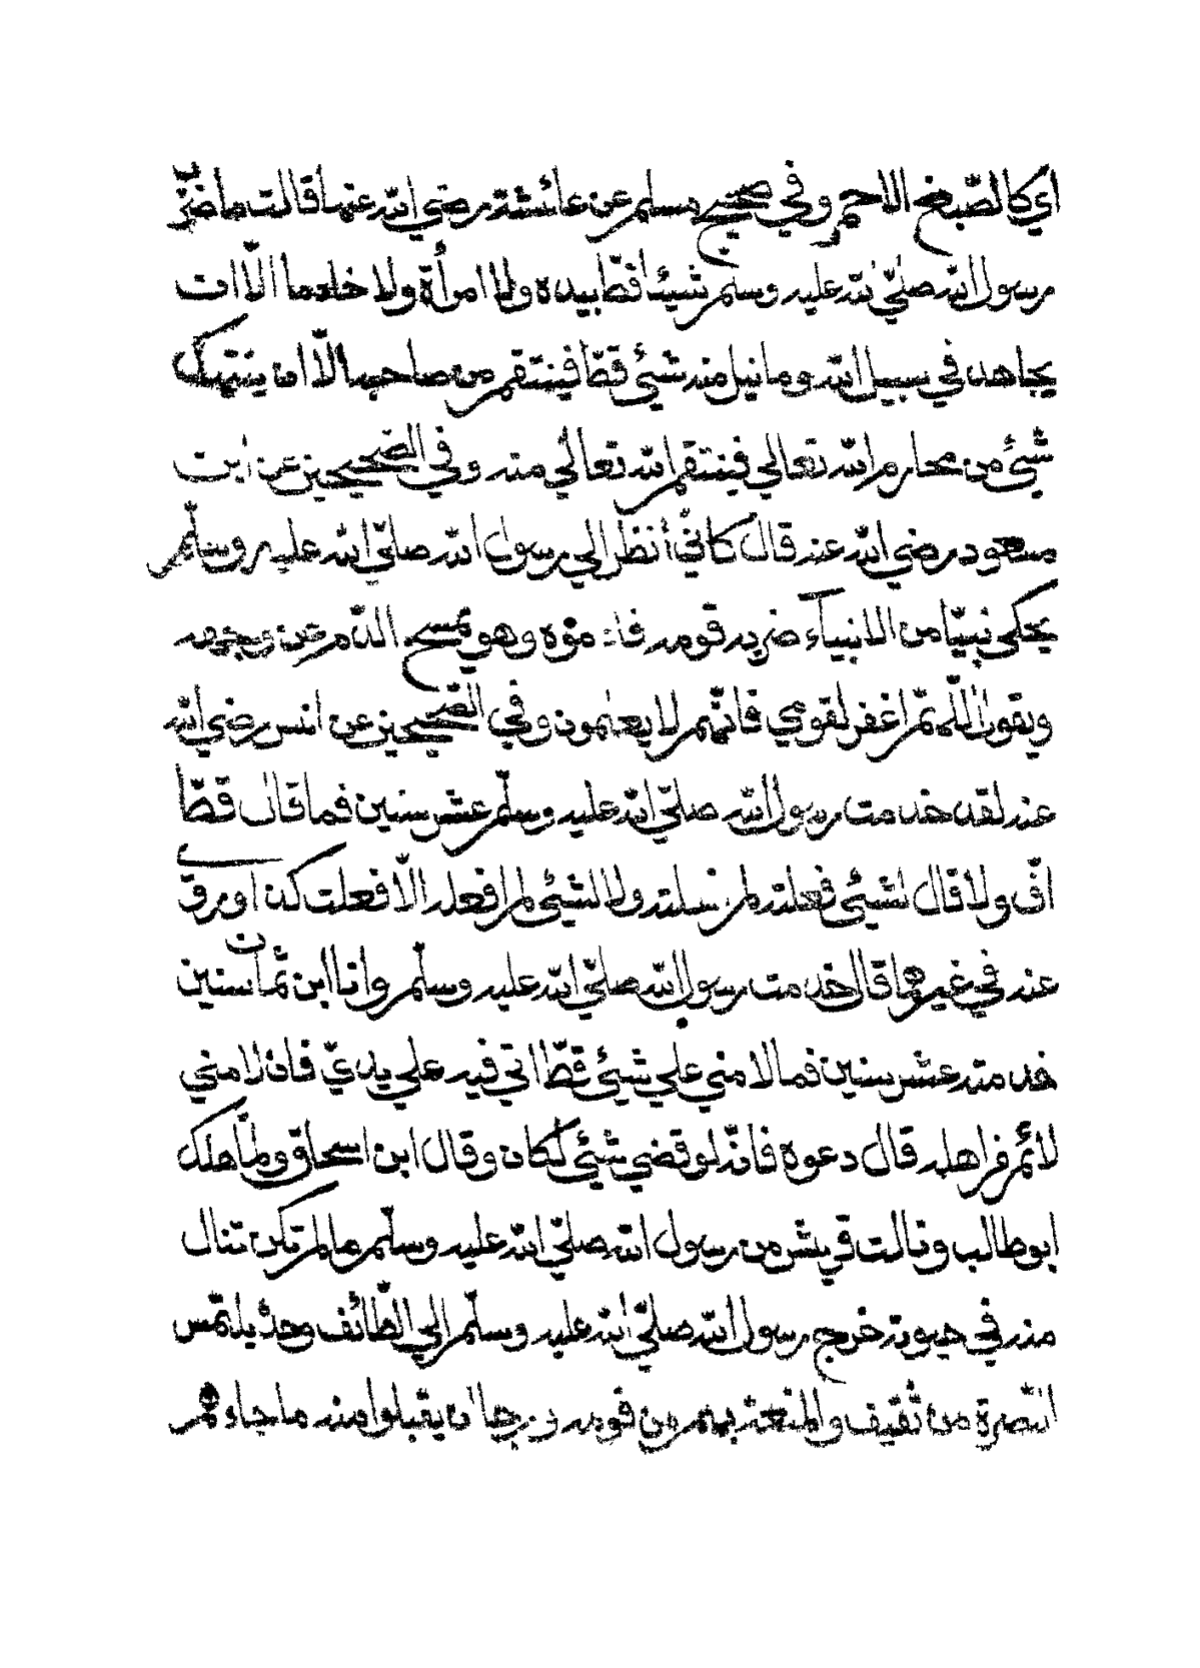 اي كالصّبغ الاحمر وفي صحيح مسلم عن عائشة رضي الله عنها قالت ما ضرب
رسول الله صلّي الله عليه وسلّم شيئا قطّ بيده ولا امرأة ولا خادما الّا ان
يجاهد في سبيل الله وما نيل منه شئي قطّ فينتقم من صاحبه الّا ان ينتهك
شئي من محارم الله تعالي فينتقم الله تعالي منه وفي الصّحيحين عن ابن
مسعود رضي الله عنه قال كانّي أنظر الي رسول الله صلّي الله عليه وسلّم
يحكي نبيّا من الانبيآء ضربه قومه فادموه وهو يمسح الدّم عن وجهه
ويقول اللّهمّ اغفر لقومي فانّهم لا يعلمون وفي الصّحيحين عن انس رضي الله
عنه لقد خدمت رسول الله صلّي الله عليه وسلّم عشر سنين فما قال قطّ
افّ ولا قال لشيئي فعلته لم فعلته ولا لشيئي لم افعله الّا فعلت كذا وروي
عنه في غيرهما قال خدمت رسول الله صلّي الله عليه وسلّم وانا ابن ثمان سنين
خدمته عشر سنين فما لامني علي شيئي قطّ اتي فيه علي يديّ فان لامني
لائم من اهله قال دعوه فانّه لو قضي شئي لكان وقال ابن اسحاق ولمّا هلك
ابو طالب ونالت قريش من رسول الله صلّي الله عليه وسلّم ما لم تكن تنال
منه في حيوته خرج رسول الله صلّي الله عليه وسلّم الي الطّائف وحده يلتمس
النّصرة من ثقيف والمنعة بهم من قومه ورجا ان يقبلوا منه ما جاءهم